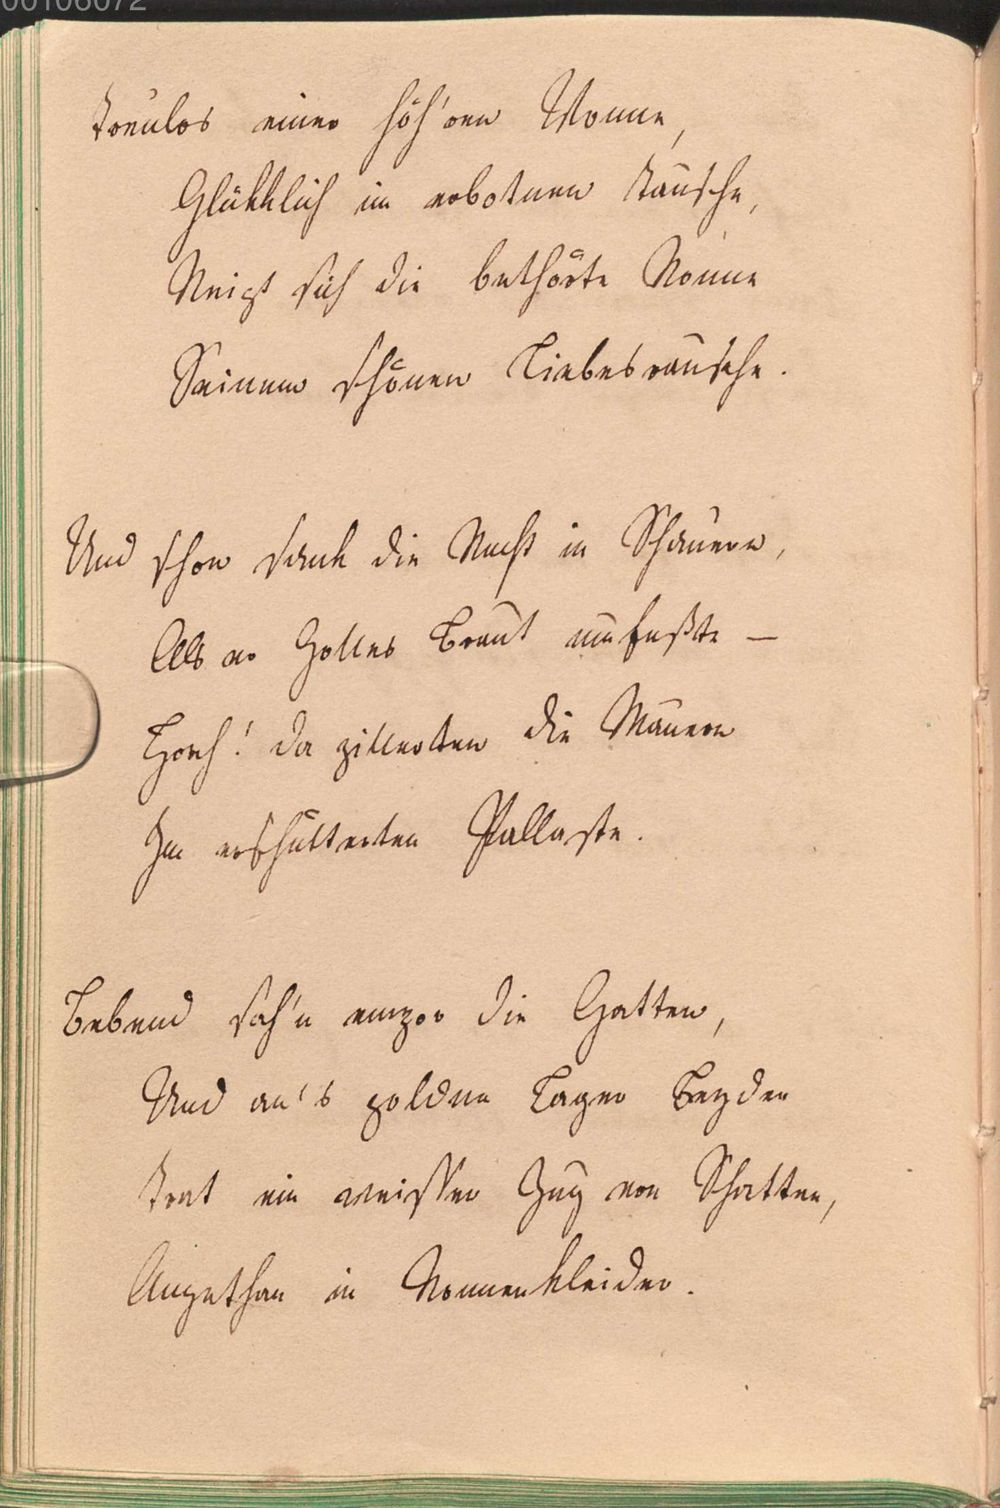 00106072
Treulos einer höh'ren Wonne,
Glükklich im erbotnen Tausche,
Neigt sich die bethörte Nonne
Seinem schönen Liebesrausche.
Und schon sank die Nacht in Schauern,
Als er Gottes Braut umfaßte —
Horch! da zitterten die Mauern
Im erschütterten Pallaste.
Bebend sah'n empor die Gatten,
Und an's goldne Lager Beyder
Trat ein weisser Zug von Schatten,
Angethan in Nonnenkleider.